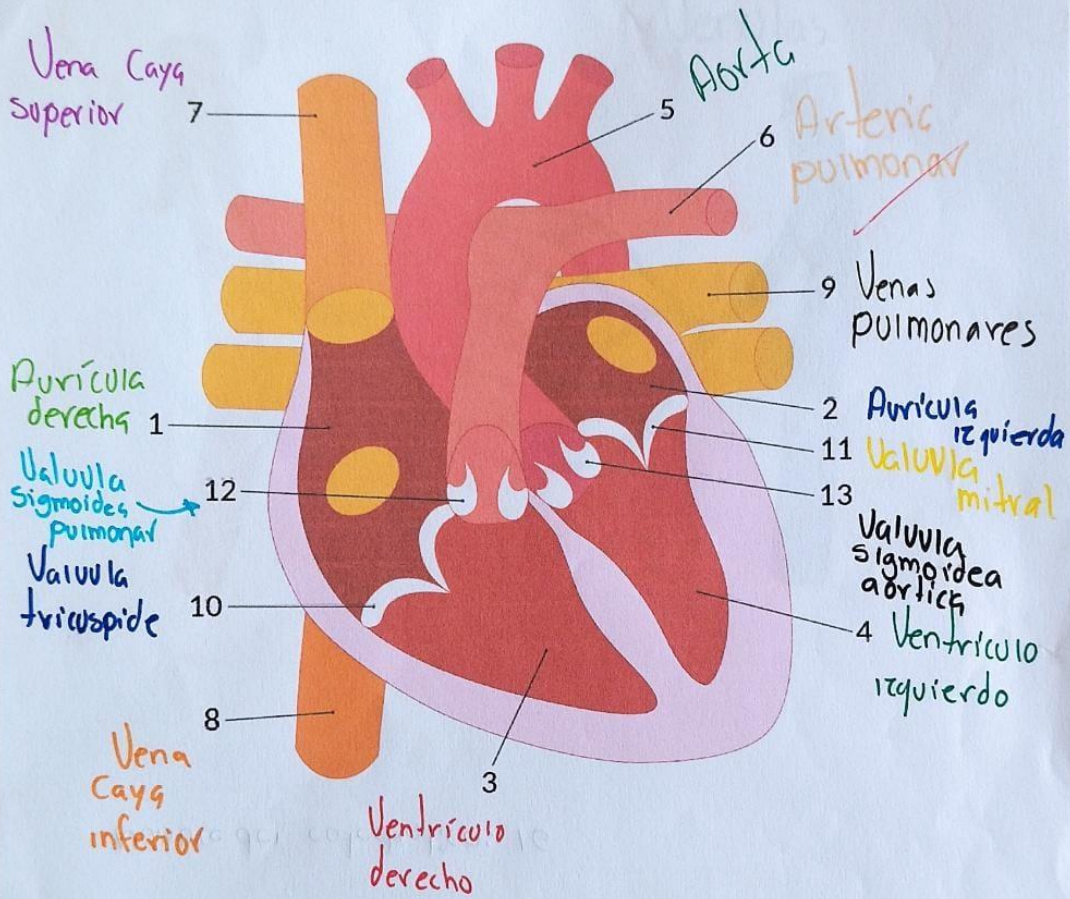 Vena Cava
superior
7
5
Aorta
6
Arteria
pulmonar
9
Venas
pulmonares
Aurícula
derecha
1
2
Aurícula
izquierda
11
Valvula
mitral
Valvula
sigmoidea
pulmonar
12
13
Valvula
sigmoidea
aórtica
Valvula
tricuspide
10
4
Ventrículo
izquierdo
8
Vena
Cava
inferior
3
Ventrículo
derecho